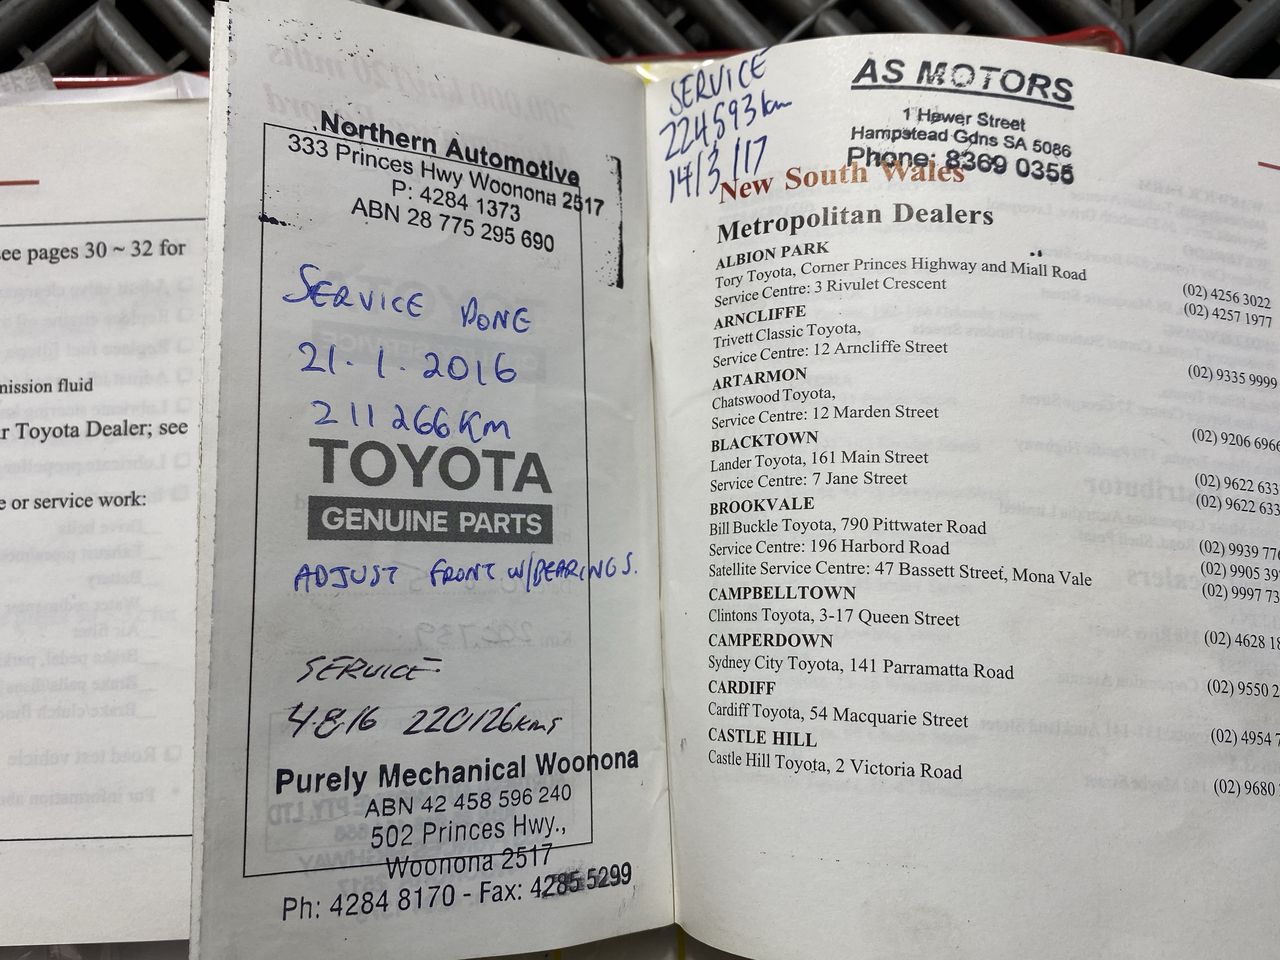 see pages 30 ~ 32 for
mission fluid
r Toyota Dealer; see
e or service work:
Northern Automotive
333 Princes Hwy Woonona 2517
P: 4284 1373
ABN 28 775 295 690
SERVICE DONE
21.1.2016
211266Km
TOYOTA
GENUINE PARTS
ADJUST FRONT W/BEARINGS.
SERVICE
4.8.16 220126kms
Purely Mechanical Woonona
ABN 42 458 596 240
502 Princes Hwy.,
Woonona 2517
Ph: 4284 8170 - Fax: 4285 5299
SERVICE
224593km
14/3/17
AS MOTORS
1 Hewer Street
Hampstead Gdns SA 5086
Phone: 8369 0356
New South Wales
Metropolitan Dealers
ALBION PARK
Tory Toyota, Corner Princes Highway and Miall Road (02) 4256 3022
Service Centre: 3 Rivulet Crescent (02) 4257 1977
ARNCLIFFE
Trivett Classic Toyota,
Service Centre: 12 Arncliffe Street (02) 9335 9999
ARTARMON
Chatswood Toyota,
Service Centre: 12 Marden Street (02) 9206 6966
BLACKTOWN
Lander Toyota, 161 Main Street (02) 9622 633
Service Centre: 7 Jane Street (02) 9622 633
BROOKVALE
Bill Buckle Toyota, 790 Pittwater Road (02) 9939 776
Service Centre: 196 Harbord Road (02) 9905 39
Satellite Service Centre: 47 Bassett Street, Mona Vale (02) 9997 73
CAMPBELLTOWN
Clintons Toyota, 3-17 Queen Street (02) 4628 18
CAMPERDOWN
Sydney City Toyota, 141 Parramatta Road (02) 9550 2
CARDIFF
Cardiff Toyota, 54 Macquarie Street (02) 4954 7
CASTLE HILL
Castle Hill Toyota, 2 Victoria Road (02) 9680